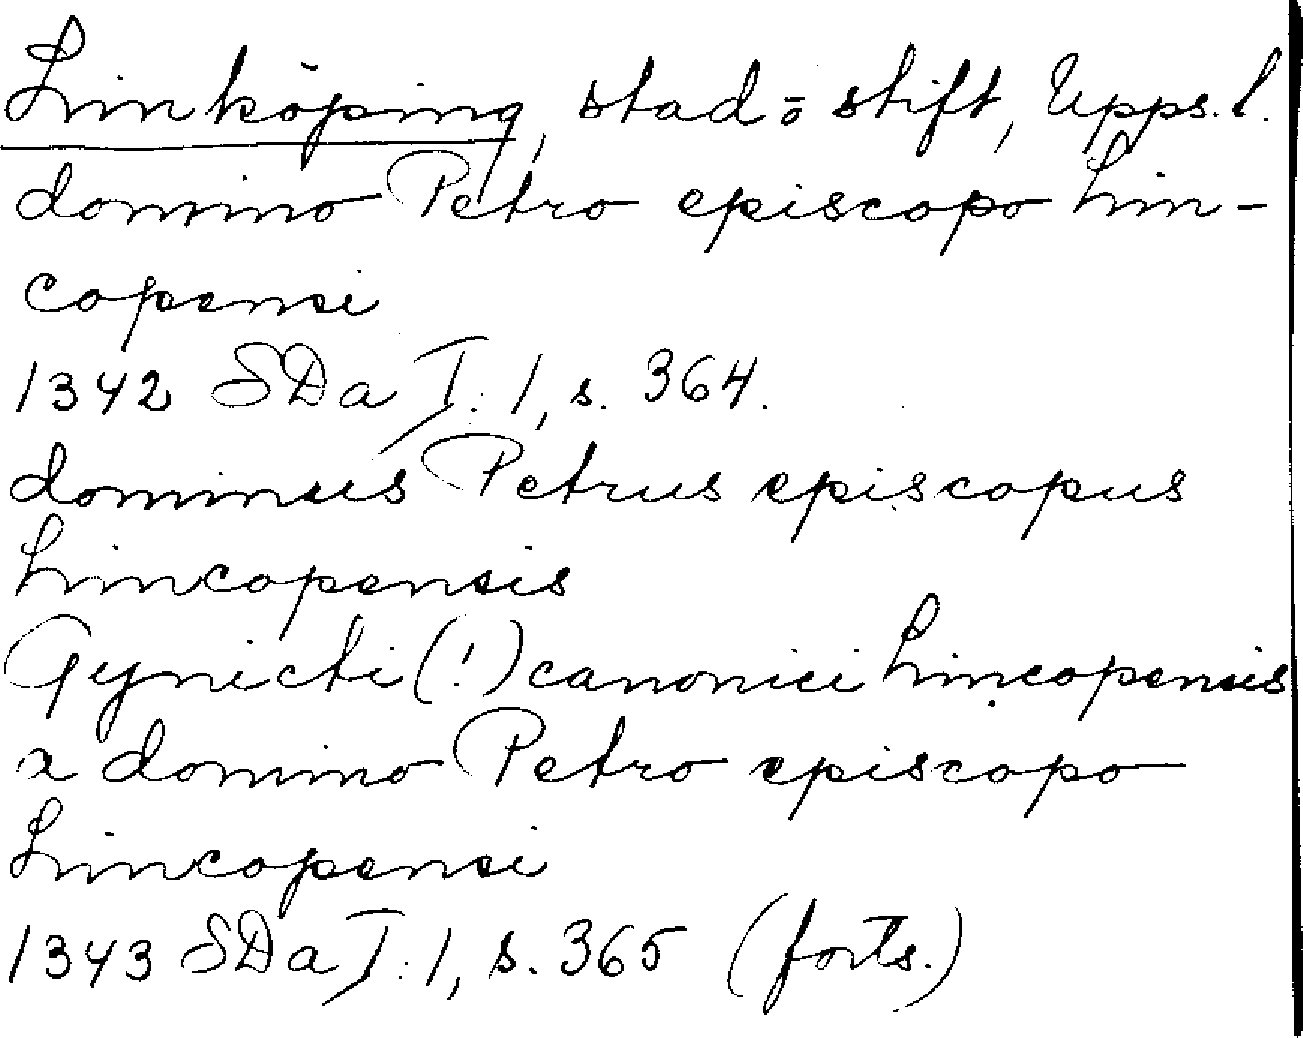 Linköping, stad o stift, Upps. l.
domino Petro episcopo Lin-
copensi
1342 SDa I:1, s. 364.
dominus Petrus episcopus
Lincopensis
Gynichi (!) canonici Lincopensis
a domino Petro episcopo
Lincopensi
1343 SDa I:1, s. 365 (forts.)